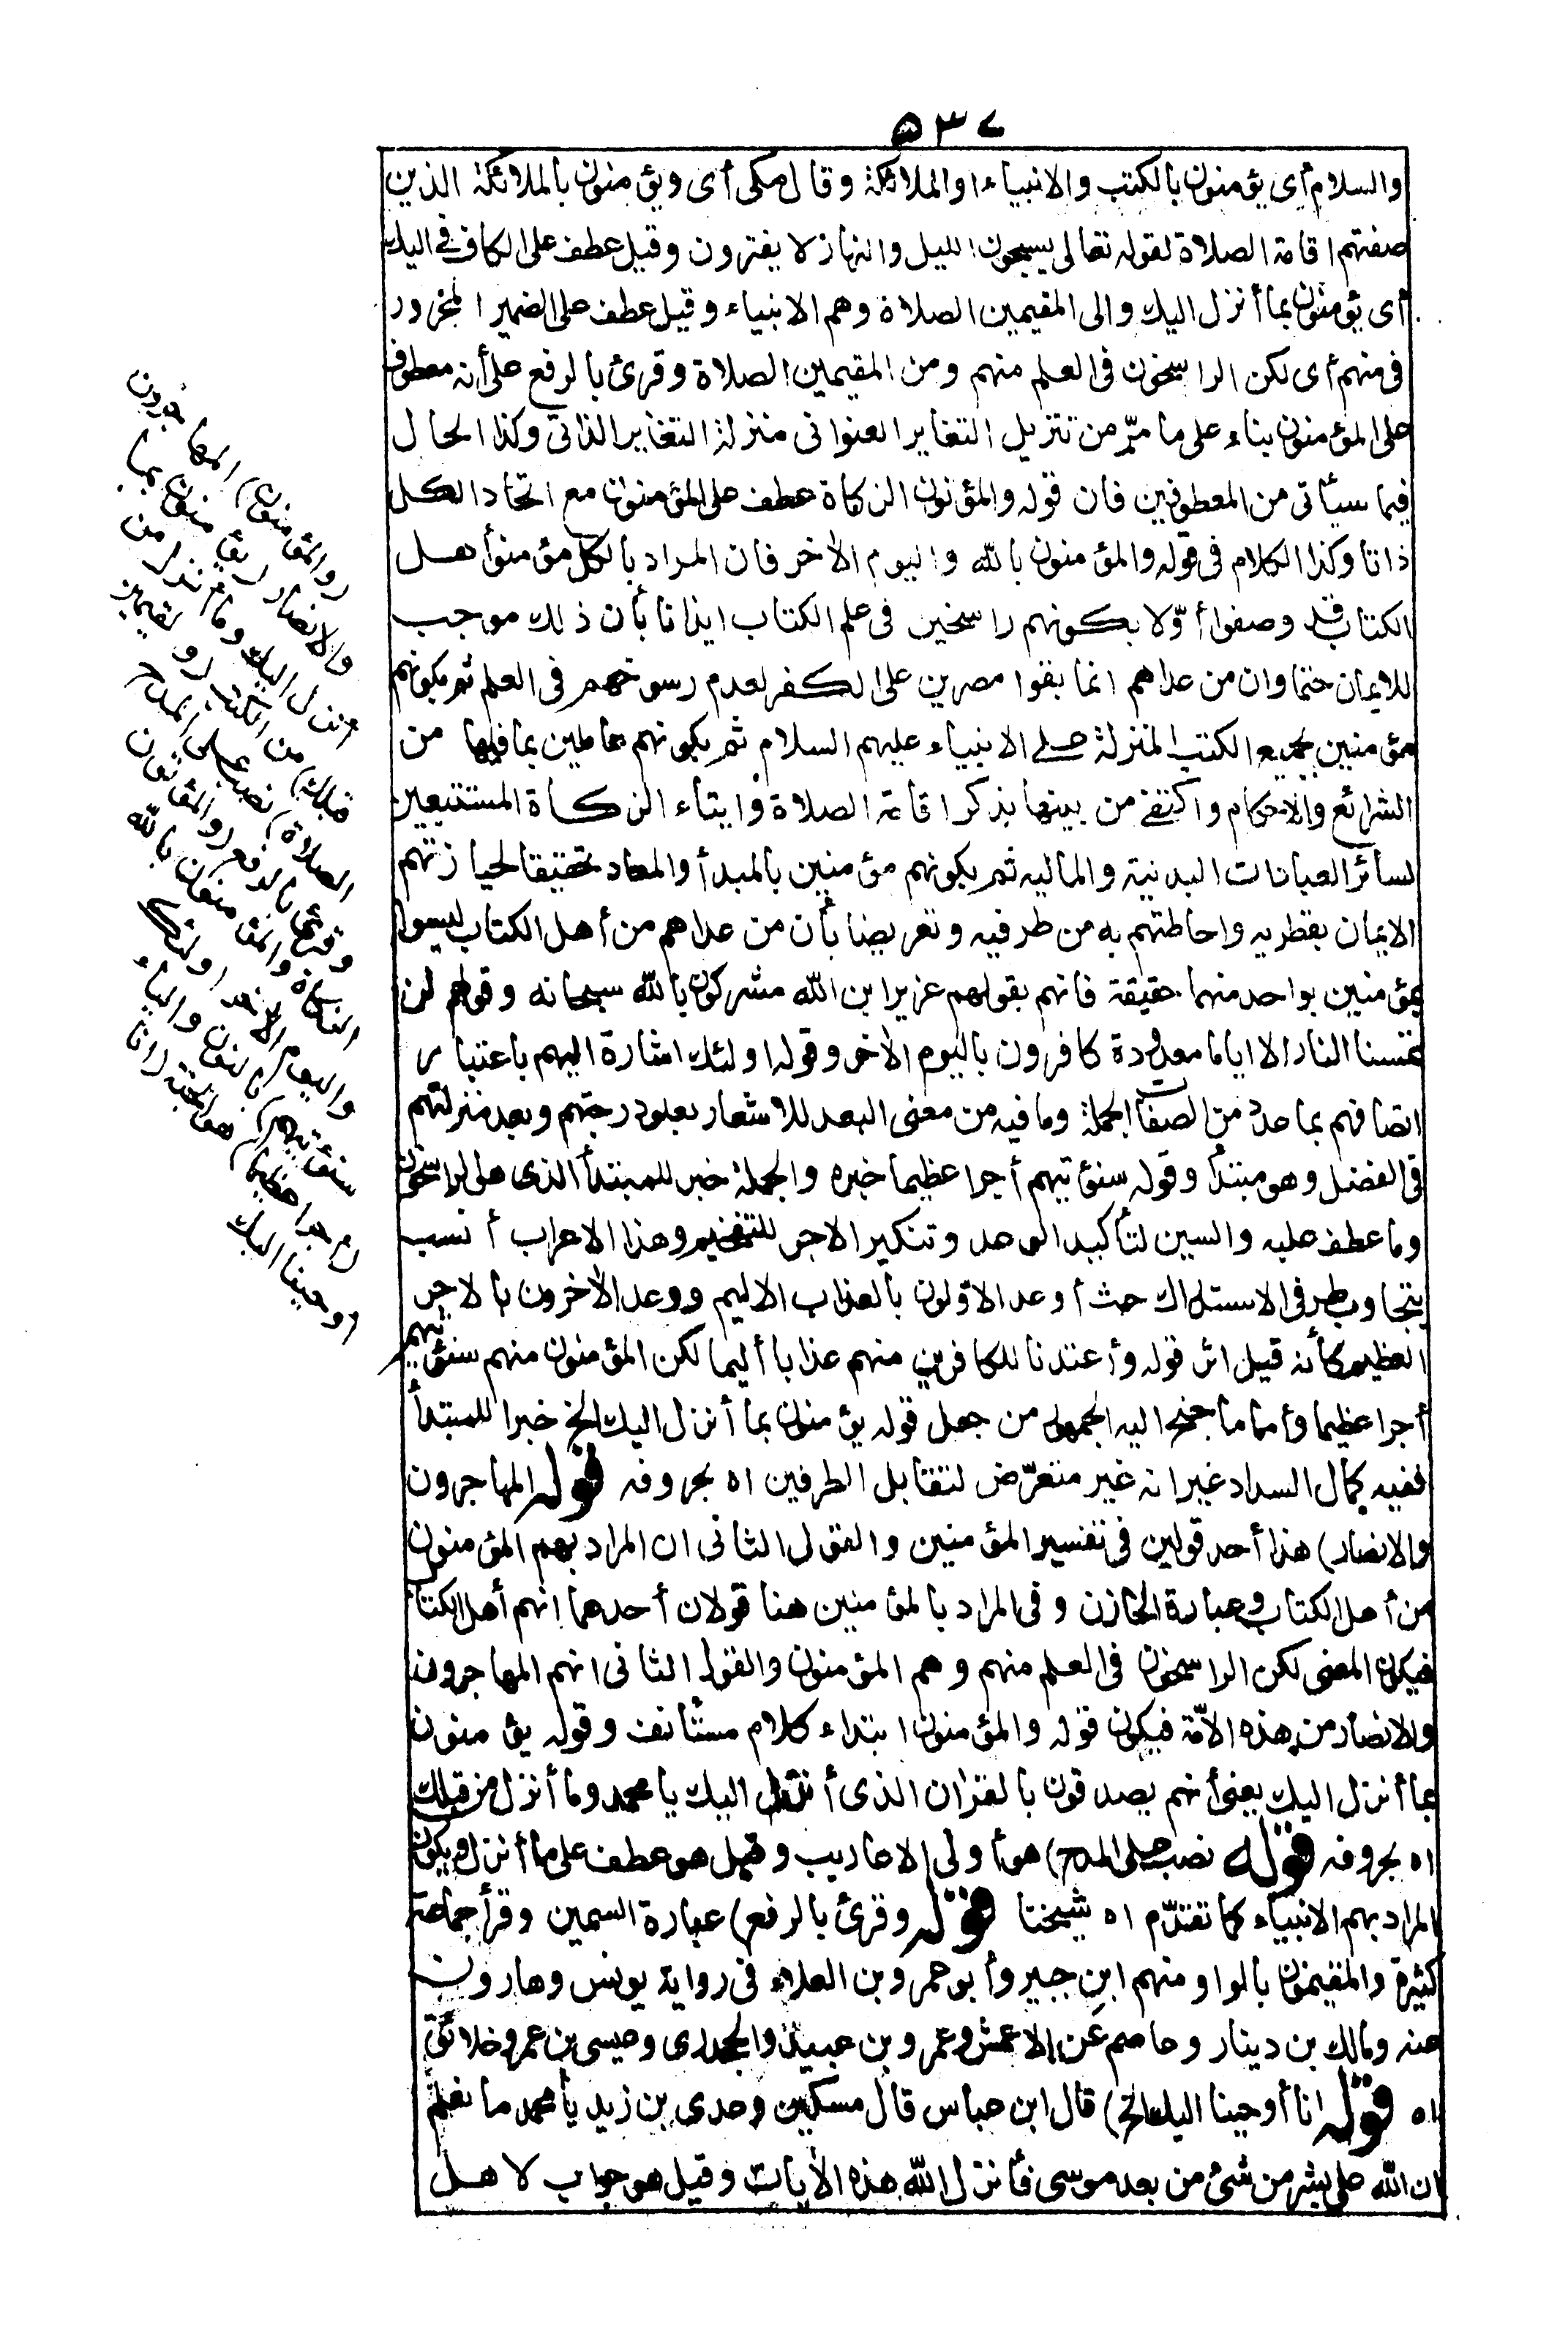 ٥٣٧
والسلام أى يؤمنون بالكتب والانبياء او الملائكة وقال مكى أى ويؤمنون بالملائكة الذين
صفتهم اقامة الصلاة لقوله تعالى يسبحون الليل والنهار لا يفترون وقيل عطف على الكاف فى اليك
أى يؤمنون بما أنزل اليك والى المقيمين الصلاة وهم الانبياء وقيل عطف على الضمير المجرور
فى منهم أى لكن الراسخون فى العلم منهم ومن المقيمين الصلاة وقرئ بالرفع على أنه معطوف
على المؤمنون بناء على ما مرّ من تنزيل التغاير العنوانى منزلة التغاير الذاتى وكذا الحال
فيما سيأتى من المعطوفين فان قوله والمؤتون الزكاة عطف على المؤمنون مع اتحاد الكل
ذاتا وكذا الكلام فى قوله والمؤمنون بالله واليوم الآخر فان المراد بالكل مؤمنوأهل
الكتاب قد وصفوا أوّلا بكونهم راسخين فى علم الكتاب ايذانا بأن ذلك موجب
للايمان حتما وان من عداهم انما بقوا مصرين على الكفر لعدم رسوخهم فى العلم ثم بكونهم
مؤمنين بجميع الكتب المنزلة على الانبياء عليهم السلام ثم بكونهم عاملين بما فيها من
الشرائع والاحكام واكتفى من بينها بذكر اقامة الصلاة وايتاء الزكاة المستتبعين
لسائر العبادات البدنية والمالية ثم بكونهم مؤمنين بالمبدأ والمعاد تحقيقا لحيازتهم
الايمان بقطريه واحاطتهم به من طرفيه وتعريضا بأن من عداهم من أهل الكتاب ليسوا
بمؤمنين بواحد منهما حقيقة فانهم بقولهم عزير ابن الله مشركون بالله سبحانه وقولهم لن
تمسنا النار الا اياما معدودة كافرون باليوم الآخر وقوله اولئك اشارة اليهم باعتبار
اتصافهم بما عدد من الصفات الجملة وما فيه من معنى البعد للاشعار بعلو درجتهم وبعد منزلتهم
فى الفضل وهو مبتدأ وقوله سنؤتيهم أجرا عظيما خبره والجملة خبر للمبتدأ الذى هو الراسخون
وما عطف عليه والسين لتأكيد الوعد وتنكير الاجر للتفخيم وهذا الاعراب أنسب
بتجاوب طرفى الاستدراك حيث أوعد الاوّلون بالعذاب الاليم ووعد الآخرون بالاجر
العظيم كأنه قيل اثر قوله وأعتدنا للكافرين منهم عذابا أليما لكن المؤمنون منهم سنؤتيهم
أجرا عظيما وأما ما جنح اليه الجمهور من جعل قوله يؤمنون بما أنزل اليك الخ خبرا للمبتدأ
ففيه كمال السداد غير انه غير متعرّض لتقابل الطرفين اه بحروفه قوله المهاجرون
والانصار) هذا أحد قولين فى تفسير المؤمنين والقول الثانى ان المراد بهم المؤمنون
من أهل الكتاب وعبارة الخازن وفى المراد بالمؤمنين هنا قولان أحدهما انهم أهل الكتاب
فيكون المعنى لكن الراسخون فى العلم منهم وهم المؤمنون والقول الثانى انهم المهاجرون
والانصار من هذه الامّة فيكون قوله والمؤمنون ابتداء كلام مستأنف وقوله يؤمنون
بما أنزل اليك يعنى أنهم يصدقون بالقرآن الذى أنزل اليك يا محمد وما أنزل من قبلك
اه بحروفه قوله نصب على المدح) هو أولى الاعاريب وقيل هو عطف على ما أنزل ويكون
المراد بهم الانبياء كما تقدّم اه شيخنا قوله وقرئ بالرفع) عبارة السمين وقرأ جماعة
كثيرة والمقيمون بالواو ومنهم ابن جبير وأبو عمرو بن العلاء فى رواية يونس وهارون
عنه ومالك بن دينار وعاصم عن الاعمش وعمرو بن عبيد والجحدرى وعيسى بن عمر وخلائق
اه قوله انا أوحينا اليك الخ) قال ابن عباس قال مسكين وعدى بن زيد يا محمد ما نعلم
ان الله على بشر من شئ من بعد موسى فأنزل الله هذه الآيات وقيل هو جواب لاهل
(والمؤمنون) المهاجرون
والانصار (يؤمنون بما
أنزل اليك وما أنزل من
قبلك) من الكتب (والمقيمين
الصلاة) نصب على المدح
وقرئ بالرفع (والمؤتون
الزكاة والمؤمنون بالله
واليوم الآخر اولئك
سنؤتيهم) بالنون والياء
(أجرا عظيما) هو الجنة (انا
أوحينا اليك